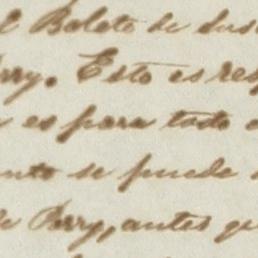 Balete de
rry. Esto es res
es para todo
nto se puede
de Perry, antes qu